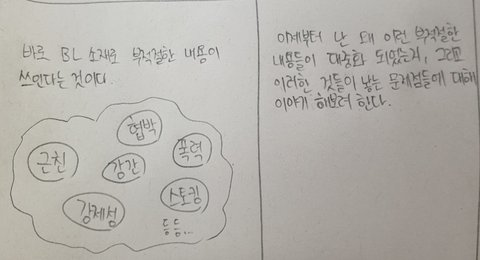 바로 BL 소재로 부적절한 내용이
쓰인다는 것이다.
협박
근친
강간
폭력
강제성
스토킹
등등...
이제부터 난 왜 이런 부적절한
내용들이 대중화 되었는지, 그리고
이러한 것들이 낳는 문제점들에 대해
이야기 해보려 한다.